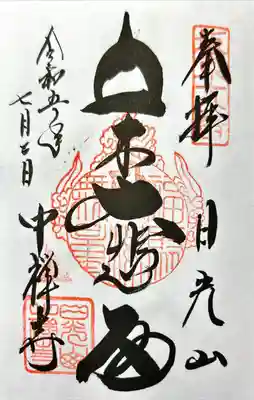 奉拝
日光山
立木大悲閣
令和五年
七月 日
中禅寺